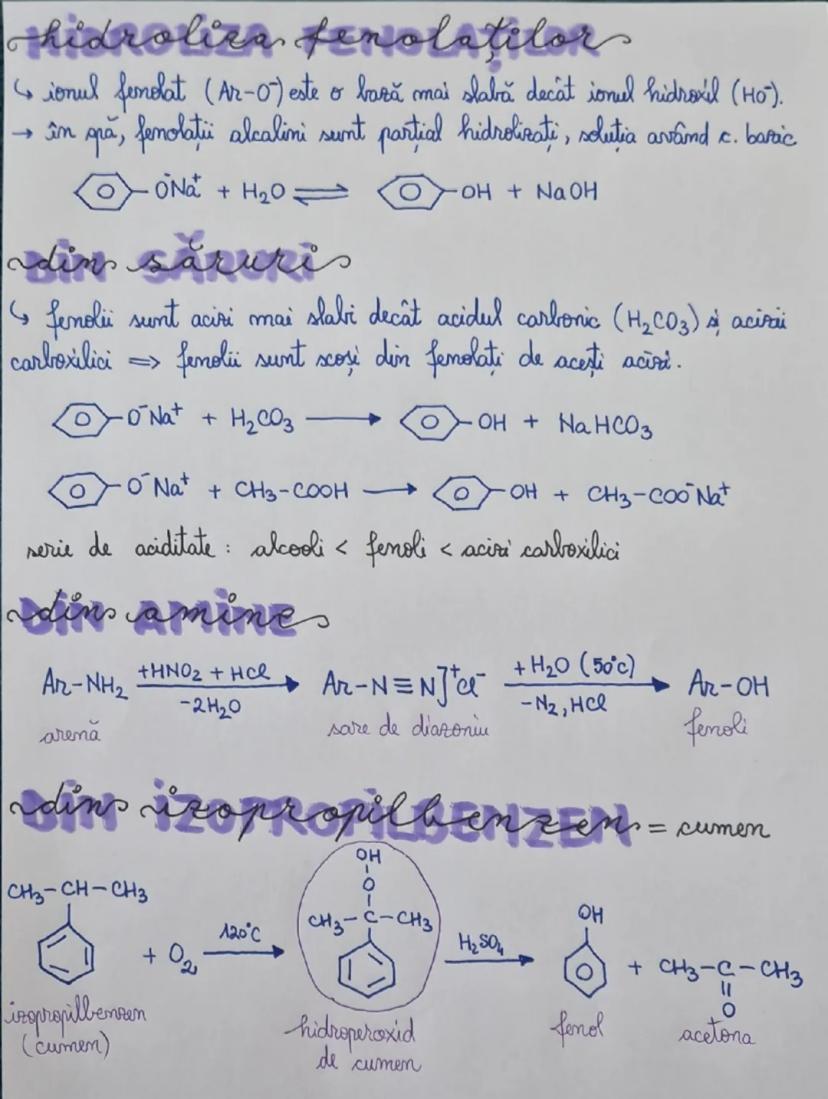 hidroliza fenolaților
↳ ionul fenolat (Ar-O⁻) este o bază mai slabă decât ionul hidroxil (HO⁻).
→ în apă, fenolații alcalini sunt parțial hidrolizați, soluția având c. bazic
O⁻Na⁺ + H₂O ⇌ OH + NaOH
din săruri
↳ fenolii sunt acizi mai slabi decât acidul carbonic (H₂CO₃) și acizii
carboxilici => fenolii sunt scoși din fenolați de acești acizi.
O⁻Na⁺ + H₂CO₃ → OH + NaHCO₃
O⁻Na⁺ + CH₃-COOH → OH + CH₃-COO⁻Na⁺
serie de aciditate : alcooli < fenoli < acizi carboxilici
din amine
Ar-NH₂ +HNO₂ + HCl -2H₂O → Ar-N≡N]⁺Cl⁻ +H₂O (50°C) -N₂, HCl → Ar-OH
arenă sare de diazoniu fenoli
din izopropilbenzen = cumen
OH
O
CH₃-CH-CH₃ CH₃-C-CH₃ OH
+ O₂ 120°C → H₂SO₄ → + CH₃-C-CH₃
O
izopropilbenzen hidroperoxid fenol acetona
(cumen) de cumen